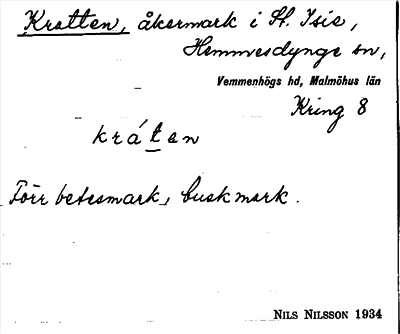 Kratten, åkermark i St. Isie,
Hemmesdynge sn,
Vemmenhögs hd, Malmöhus län
Kring 8
kráten
Förr betesmark, buskmark.
NILS NILSSON 1934